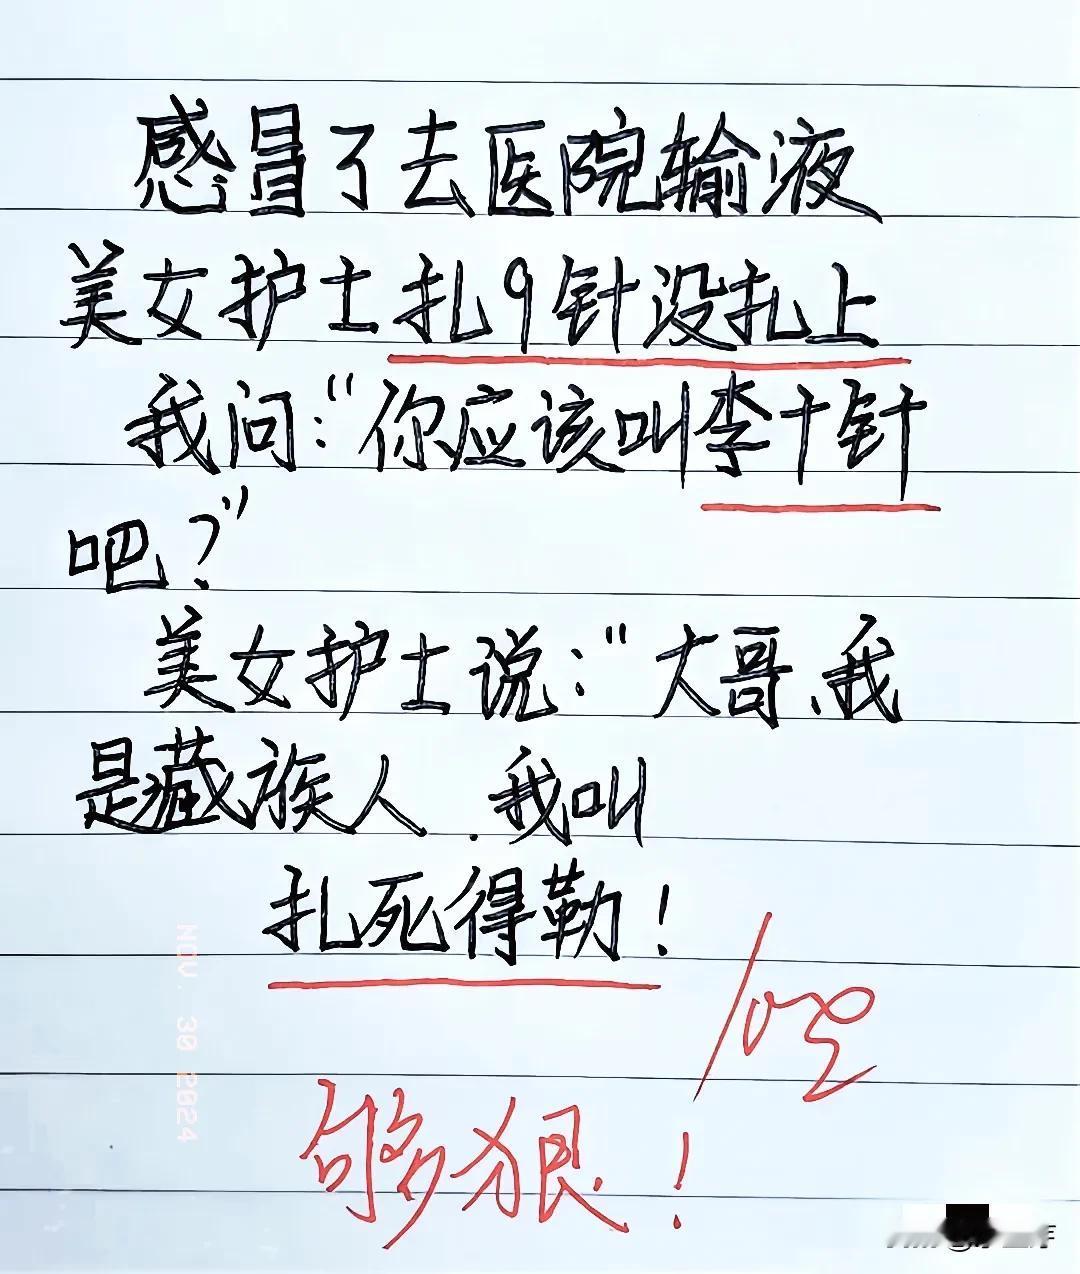 感冒了去医院输液
美女护士扎9针没扎上
我问:"你应该叫李十针
吧?"
美女护士说:"大哥、我
是藏族人.我叫
扎死得勒!
100
够狠!
NOV. 30 2024